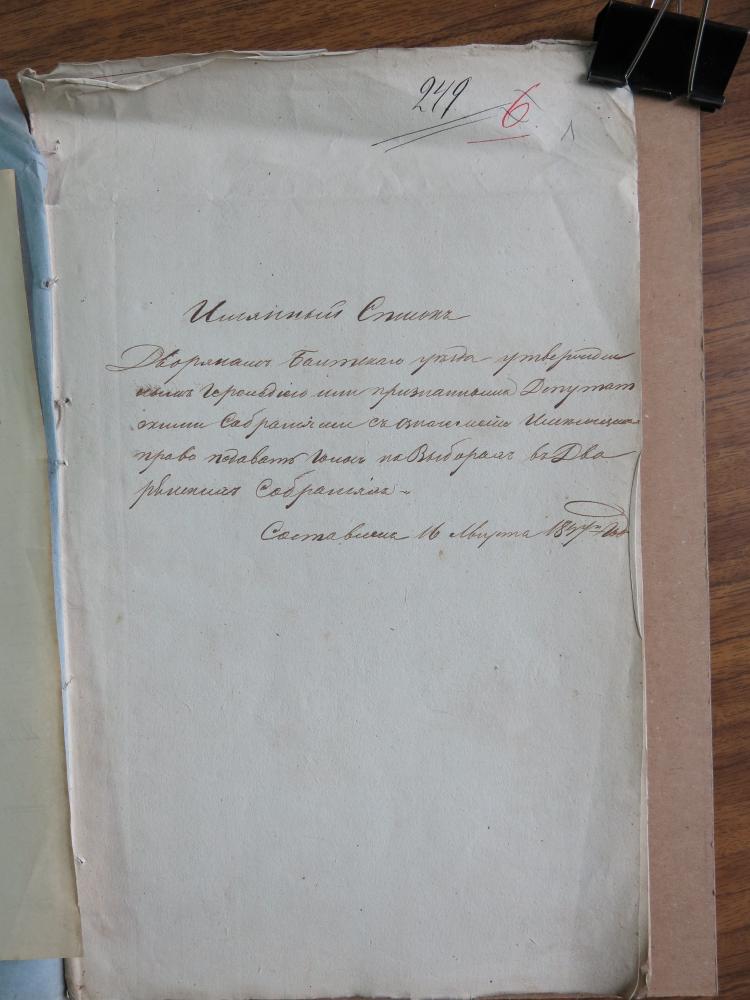 249 6 1
Имянный Списокъ
Дворянамъ Балтскаго уѣзда утвержден
нымъ Герольдіею или признаннымъ Депутат
скими Собраніями съ означеніемъ Имѣющихъ
право подавать голосъ на Выборахъ въ Дво
рянскихъ Собраніяхъ
Составленъ 16 Марта